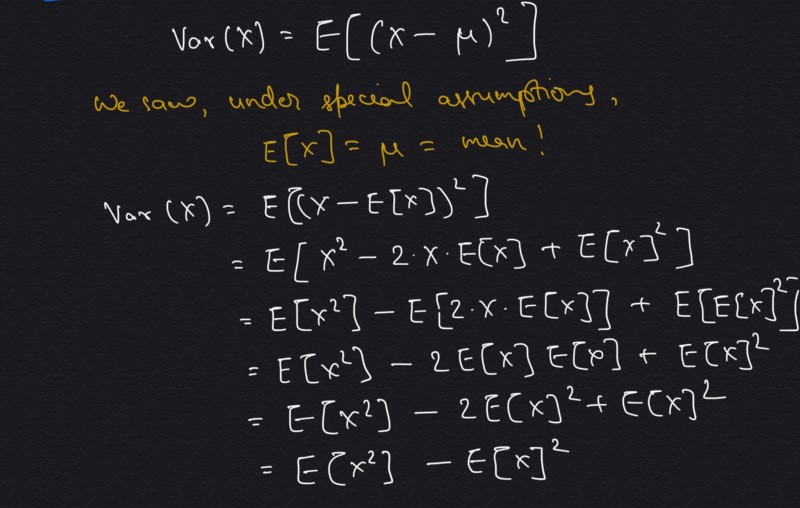 Var(X) = E[(X - μ)²]
We saw, under special assumptions,
E[X] = μ = mean!
Var(X) = E[(X - E[X])²]
= E[X² - 2·X·E[X] + E[X]²]
= E[X²] - E[2·X·E[X]] + E[E[X]²]
= E[X²] - 2E[X] E[X] + E[X]²
= E[X²] - 2E[X]² + E[X]²
= E[X²] - E[X]²